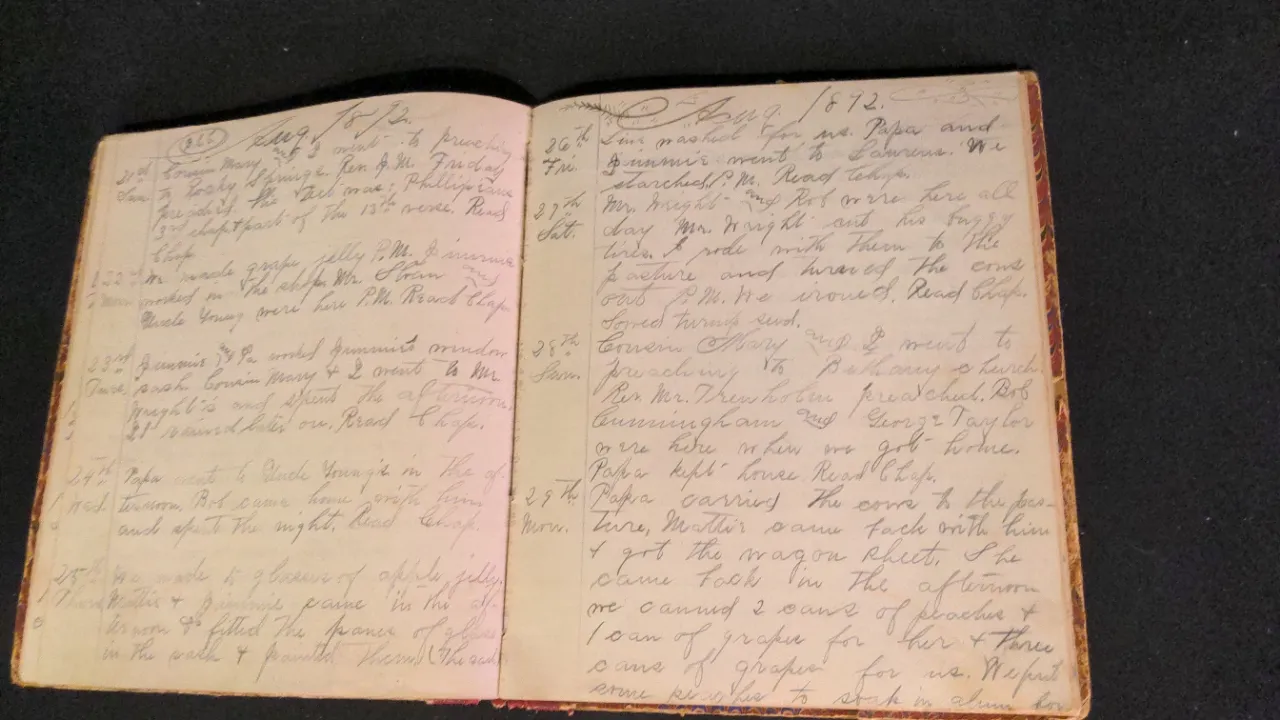 Aug. 1892.
21st Cousin Mary and I went to preaching
Sun. to Rocky Springs. Rev. J.M. Friday
preached. His text was: Phillipians
3rd chapt part of the 13th verse. Read
Chap.
22nd We made grape jelly P.M. Jimmie and
Mon. worked in the shop. Mr. Sloan
Uncle Young were here P.M. Read Chap.
23rd Jimmie & Pa worked Jimmie's window
Tues. sash. Cousin Mary & I went to Mr.
Wright's and spent the afternoon.
It rained later on. Read Chap.
24th Papa went to Uncle Young's in the af-
Wed. ternoon. Bob came home with him
and spent the night. Read Chap.
25th We made 10 glasses of apple jelly.
Thurs Mattie & Jimmie came in the af-
ternoon & fitted the panes of glass
in the sash & painted them. (The sash
Aug. 1892.
26th washed for us. Papa and
Fri. Jimmie went to Laurens. We
starched P.M. Read Chap.
27th Mr. Wright and Rob were here all
Sat. day Mr. Wright cut his buggy
tires. I rode with them to the
pasture and turned the cows
out P.M. We ironed. Read Chap.
Sowed turnip seed.
28th Cousin Mary and I went to
Sun. preaching to Bethany church.
Rev. Mr. Trenholm preached. Bob
Cunningham and George Taylor
were here when we got home.
Papa kept house Read Chap.
29th Papa carried the cows to the pas-
Mon. ture, Mattie came back with him
& got the wagon sheet. She
came back in the afternoon
we canned 2 cans of peaches &
1 can of grapes for her & three
cans of grapes for us. We put
some peaches to soak in alum for